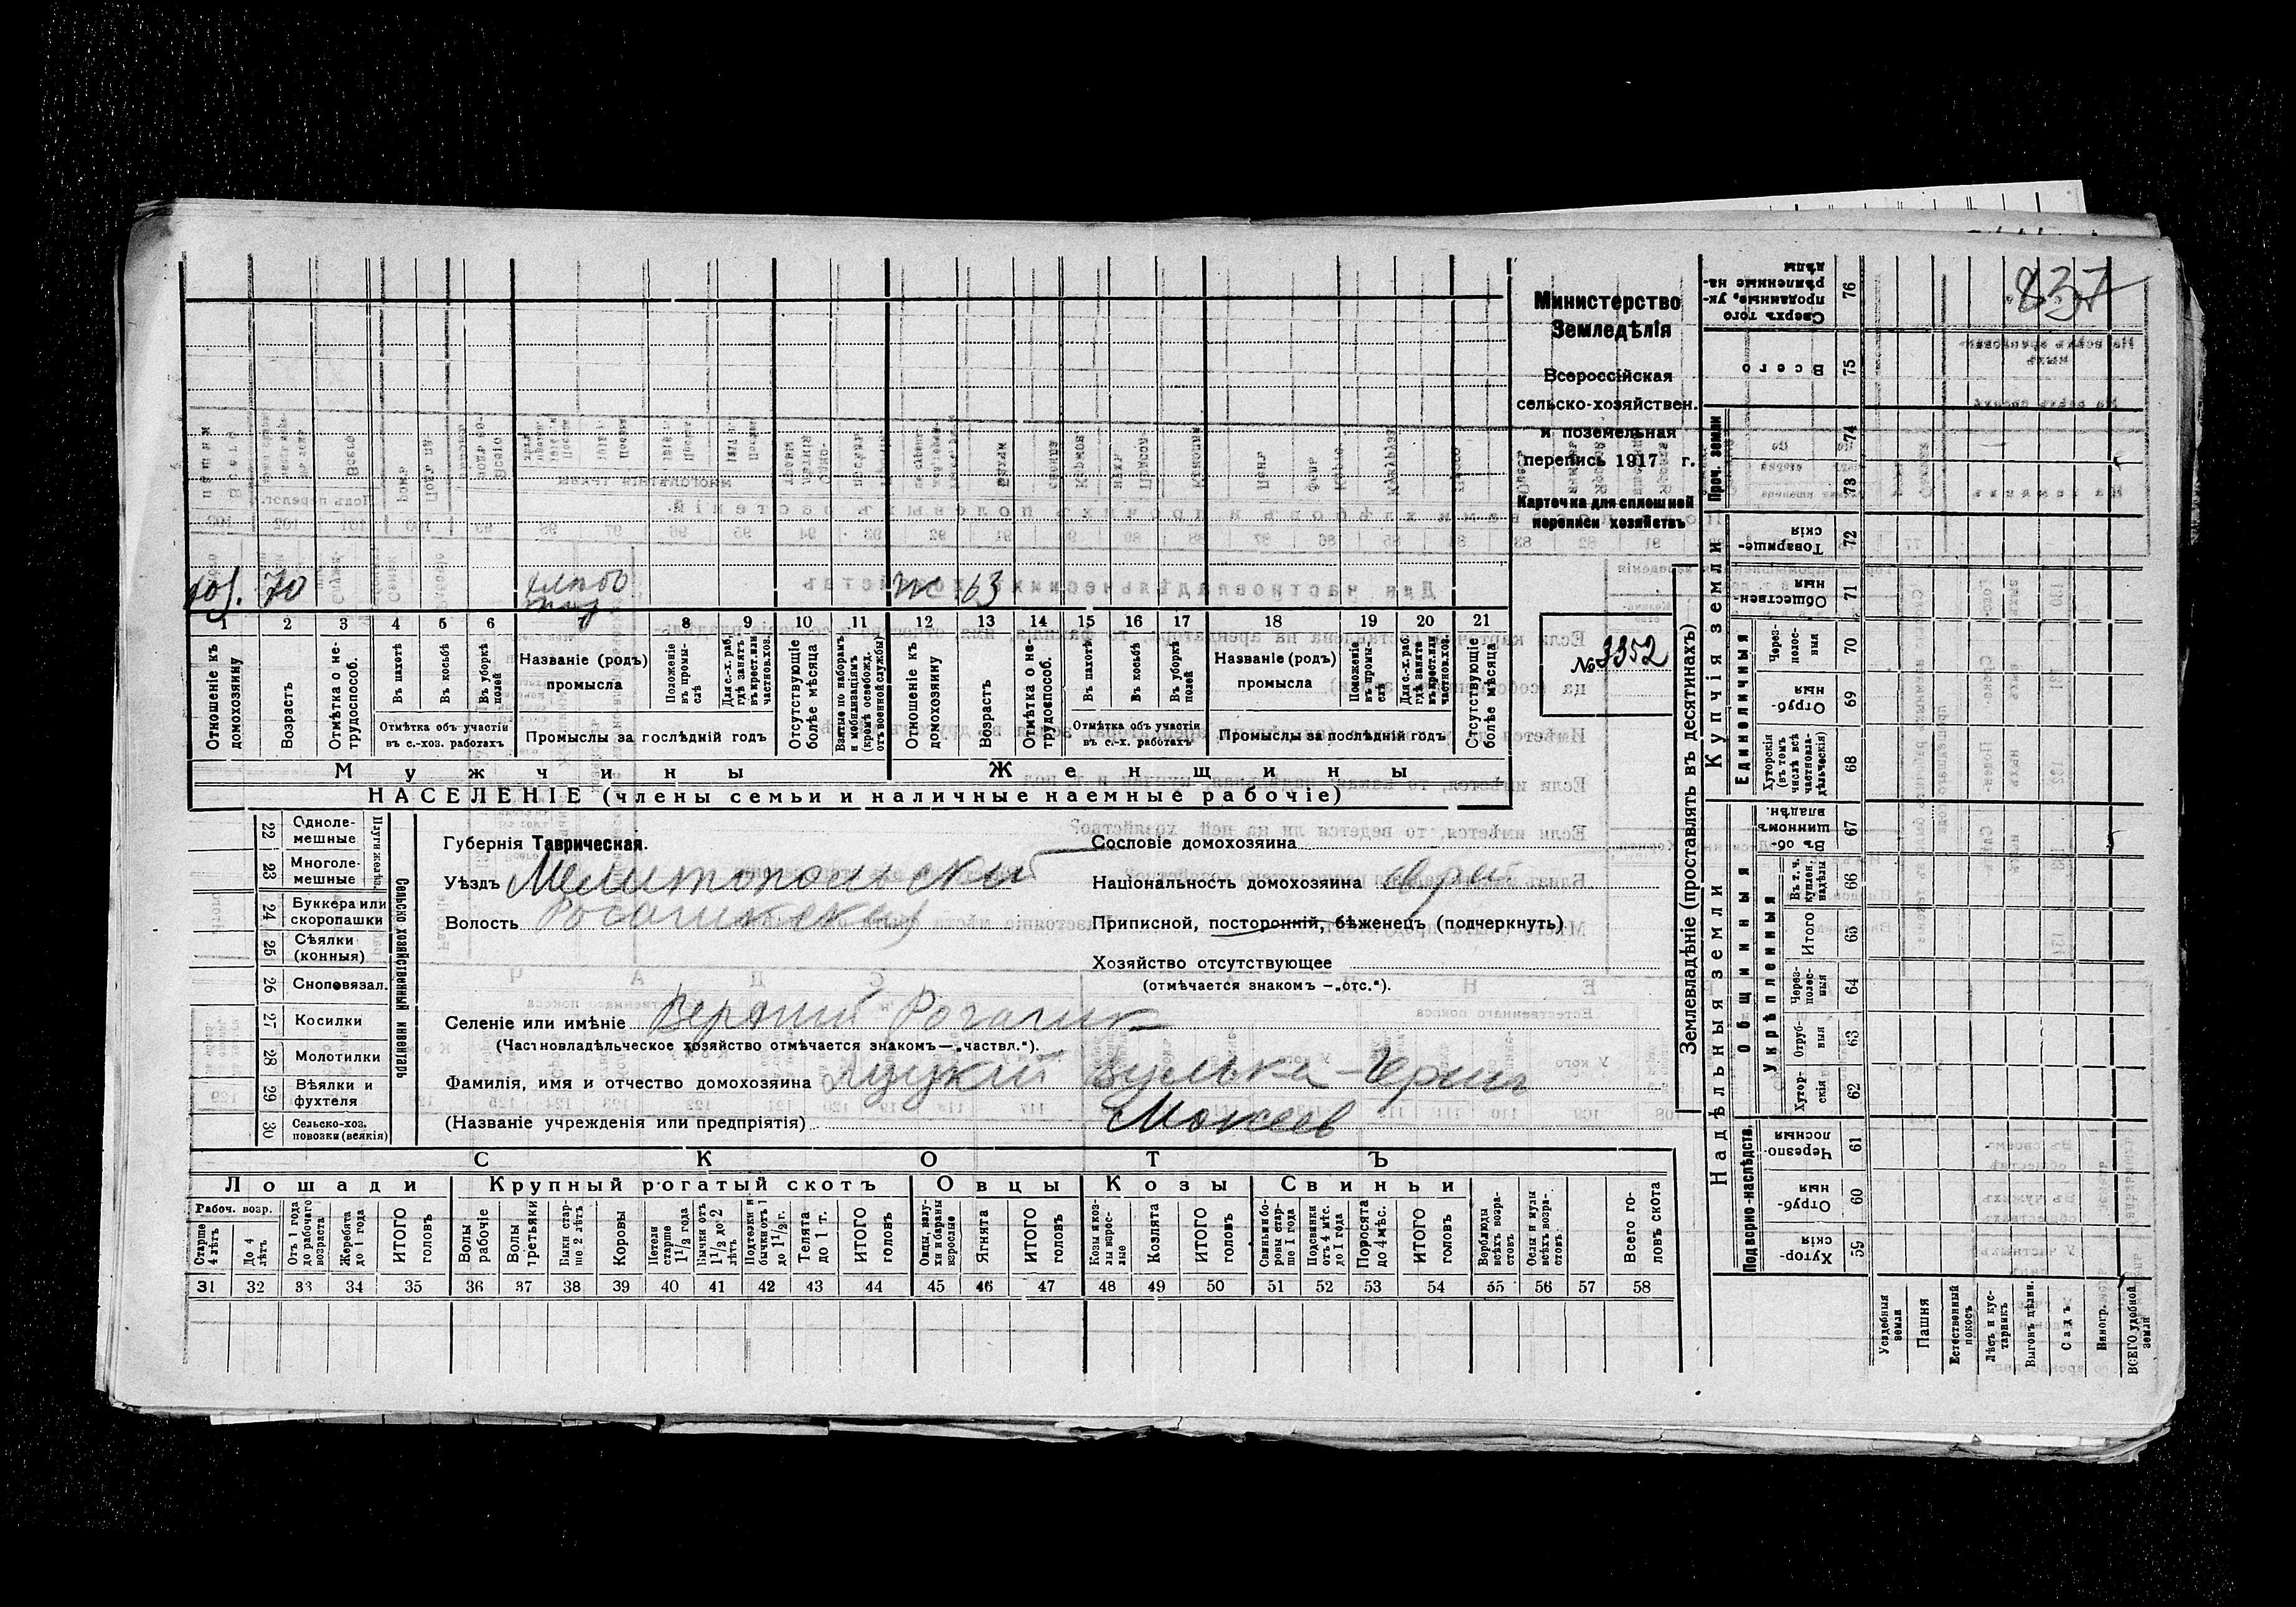 837
Министерство
Земледѣлія
Всероссійская
сельско-хозяйствен.
и поземельная
перепись 1917 г.
Карточка для сплошной
переписи хозяйствъ
№ 3352
70
ж 63
1 2 3 4 5 6 7 8 9 10 11 12 13 14 15 16 17 18 19 20 21
Отношеніе къ домохозяину
Возрастъ
Отмѣтка о не-трудоспособ.
Въ пахотѣ
Въ косьбѣ
Въ уборкѣ полей
Отмѣтка объ участіи
въ с.-хоз. работахъ
Названіе (родъ)
промысла
Положеніе въ промы-слѣ
Для с.-х. раб. гдѣ занятъ въ крест. или частнов. хоз.
Промыслы за послѣдній годъ
Отсутствующіе болѣе мѣсяца
Взятые по наборамъ и мобилизаціямъ (кромѣ освобожд. отъ военной службы)
Отношеніе къ домохозяину
Возрастъ
Отмѣтка о не-трудоспособ.
Въ пахотѣ
Въ косьбѣ
Въ уборкѣ полей
Отмѣтка объ участіи
въ с.-х. работахъ
Названіе (родъ)
промысла
Положеніе въ промы-слѣ
Для с.-х. раб. гдѣ заняты въ крест. или частнов. хоз.
Промыслы за послѣдній годъ
Отсутствующіе болѣе мѣсяца
Мужчины
Женщины
НАСЕЛЕНІЕ (члены семьи и наличные наемные рабочіе)
Сельско хозяйственный инвентарь
22 Одноле-мешные
23 Многоле-мешные
24 Буккера или скоропашки
25 Сѣялки (конныя)
26 Сноповязал.
27 Косилки
28 Молотилки
29 Вѣялки и фухтеля
30 Сельско-хоз. повозки (всякія)
Губернія Таврическая.
Уѣздъ Мелитопольскій
Волость Рогачикская
Селеніе или имѣніе Верхній Рогачик
(Частновладѣльческое хозяйство отмѣчается знакомъ—„частвл.“).
Фамилія, имя и отчество домохозяина Луцкій
(Названіе учрежденія или предпріятія) Мокеев
Сословіе домохозяина
Національность домохозяина еврей
Приписной, посторонній, бѣженецъ (подчеркнуть)
Хозяйство отсутствующее
(отмѣчается знакомъ —„отс.“).
СКОТЪ
Лошади
Крупный рогатый скотъ
Овцы
Козы
Свиньи
Рабоч. возр.
Старше 4 лѣтъ
До 4 лѣтъ
Отъ 1 года до рабочаго возраста
Жеребята до 1 года
ИТОГО головъ
Волы рабочіе
Волы третьяки
Быки стар-ше 2 лѣтъ
Коровы
Нетели старше 1½ года
Бычки отъ 1½ до 2 лѣтъ
Подтелки и бычки отъ 1 до 1½ г.
Телята до 1 г.
ИТОГО головъ
Овцы, валу-хи и бараны взрослые
Ягнята
ИТОГО головъ
Козы и коз-лы взрос-лые
Козлята
ИТОГО головъ
Свиньи и бо-ровы стар-ше 1 года
Подсвинки отъ 4 мѣс. до 1 года
Поросята до 4 мѣс.
ИТОГО головъ
Верблюды всѣхъ возра-стовъ
Ослы и мулы всѣхъ возра-стовъ
Всего го-ловъ скота
31 32 33 34 35 36 37 38 39 40 41 42 43 44 45 46 47 48 49 50 51 52 53 54 55 56 57 58
Землевладѣніе (проставлять въ десятинахъ)
Надѣльныя земли
Купчія земли
Подворно-наслѣдств.
Общинныя
Укрѣпленныя
Единоличныя
Проч. земли
76 Сверхъ того проданные, ук-рѣпленные на-дѣлы
75 Всего
74
73
72 Товарище-скія
71 Обществен-ныя
70 Через-полос-ныя
69 Отруб-ныя
68 Хуторскія (въ томъ числѣ всѣ частновла-дѣльческія)
67 Въ об-щинномъ владѣн.
66 Въ т. ч. куплен. надѣлы
65 Итого
64 Через-полос-ныя
63 Отруб-ныя
62 Хутор-скія
61 Черезпо-лосныя
60 Отруб-ныя
59 Хутор-скія
Усадебныя земли
Пашня
Естественный покосъ
Лѣсъ и кус-тарникъ
Выгонъ цѣлин.
Садъ
Виногр.
ВСЕГО удобной земли